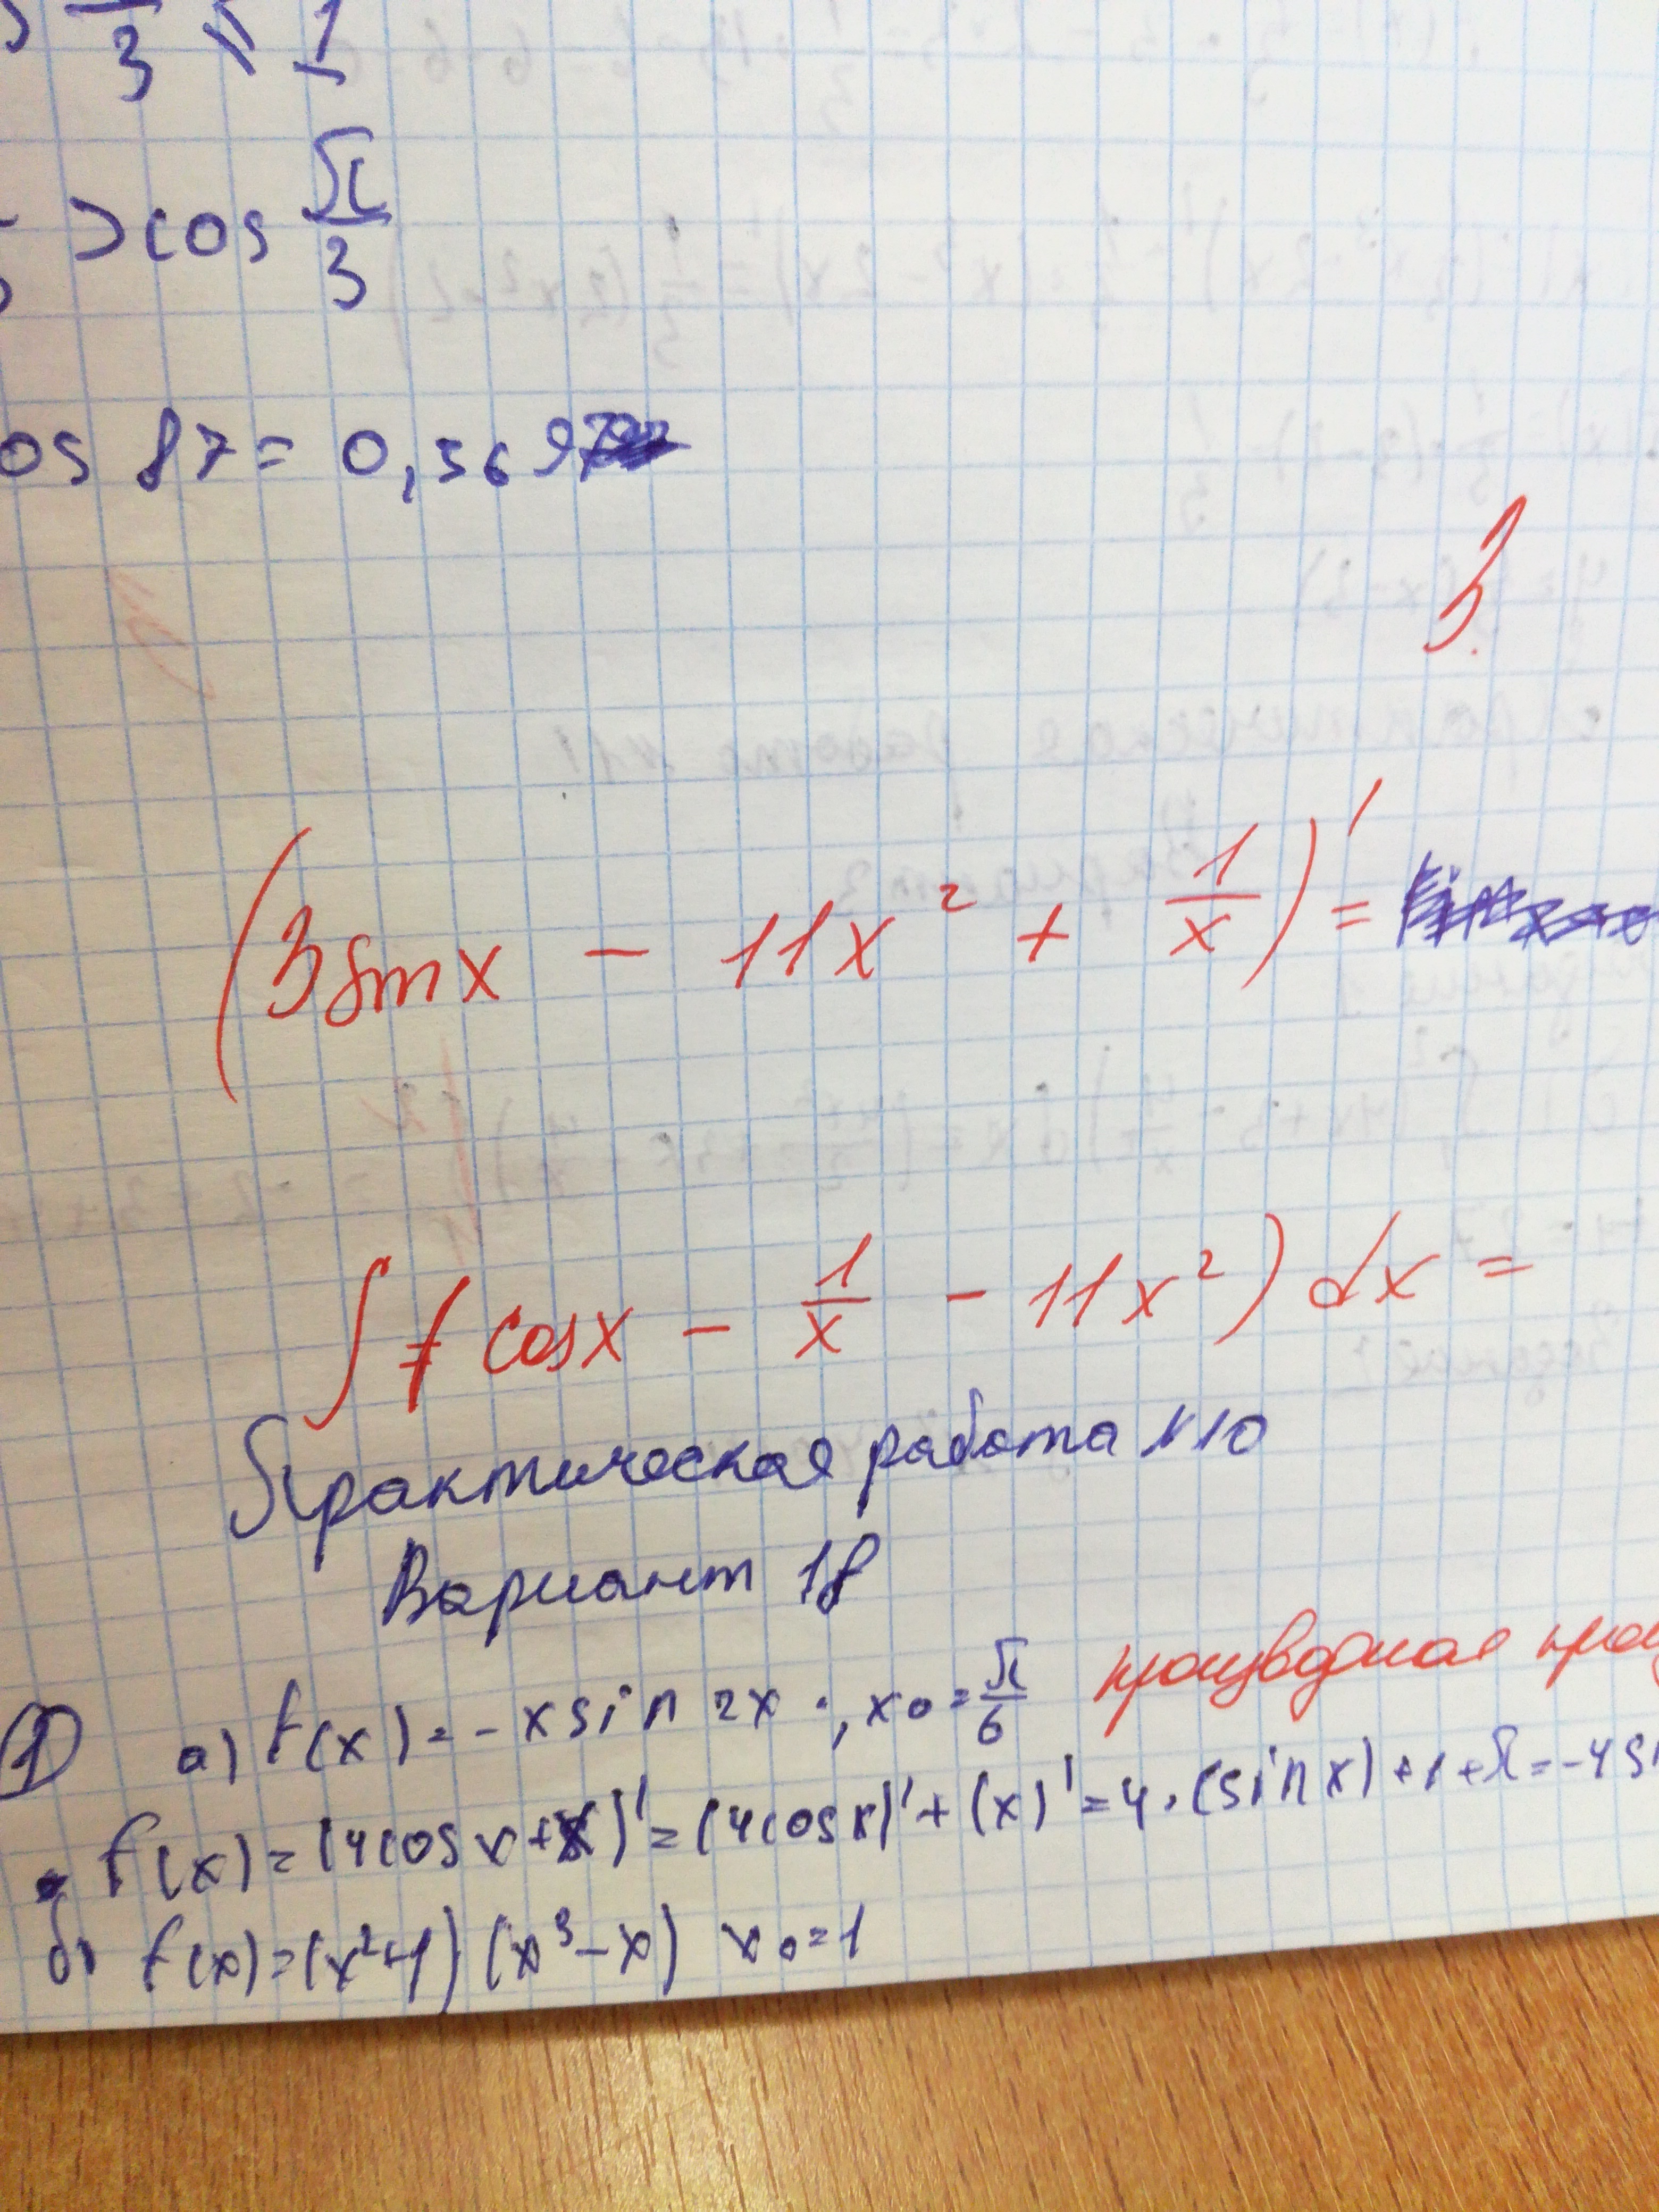 3 ≤ 1
> cos π/3
os 87 = 0,569
3.
(3 sin x - 11x² + 1/x)' =
∫ ( cos x - 1/x - 11x²) dx =
Практическая работа N10
Вариант 18
① а) f(x) = - x sin 2x ; x₀ = π/6 производная
f(x) = (4cos x + x)' = (4cos x)' + (x)' = 4 · (sin x) + 1 + π = -4 si
б) f(x) = (x²+1) (x³-x) x₀ = 1